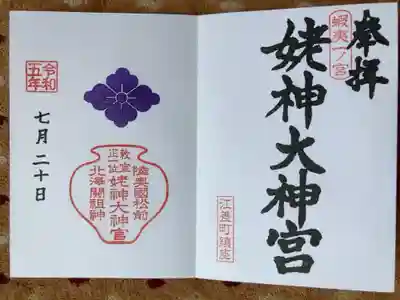 奉拝
蝦夷一ノ宮
姥神大神宮
江差町鎮座
陸奥國松前
勅宣
正一位
姥神大神宮
北海開祖神
令和
五年
七月二十日